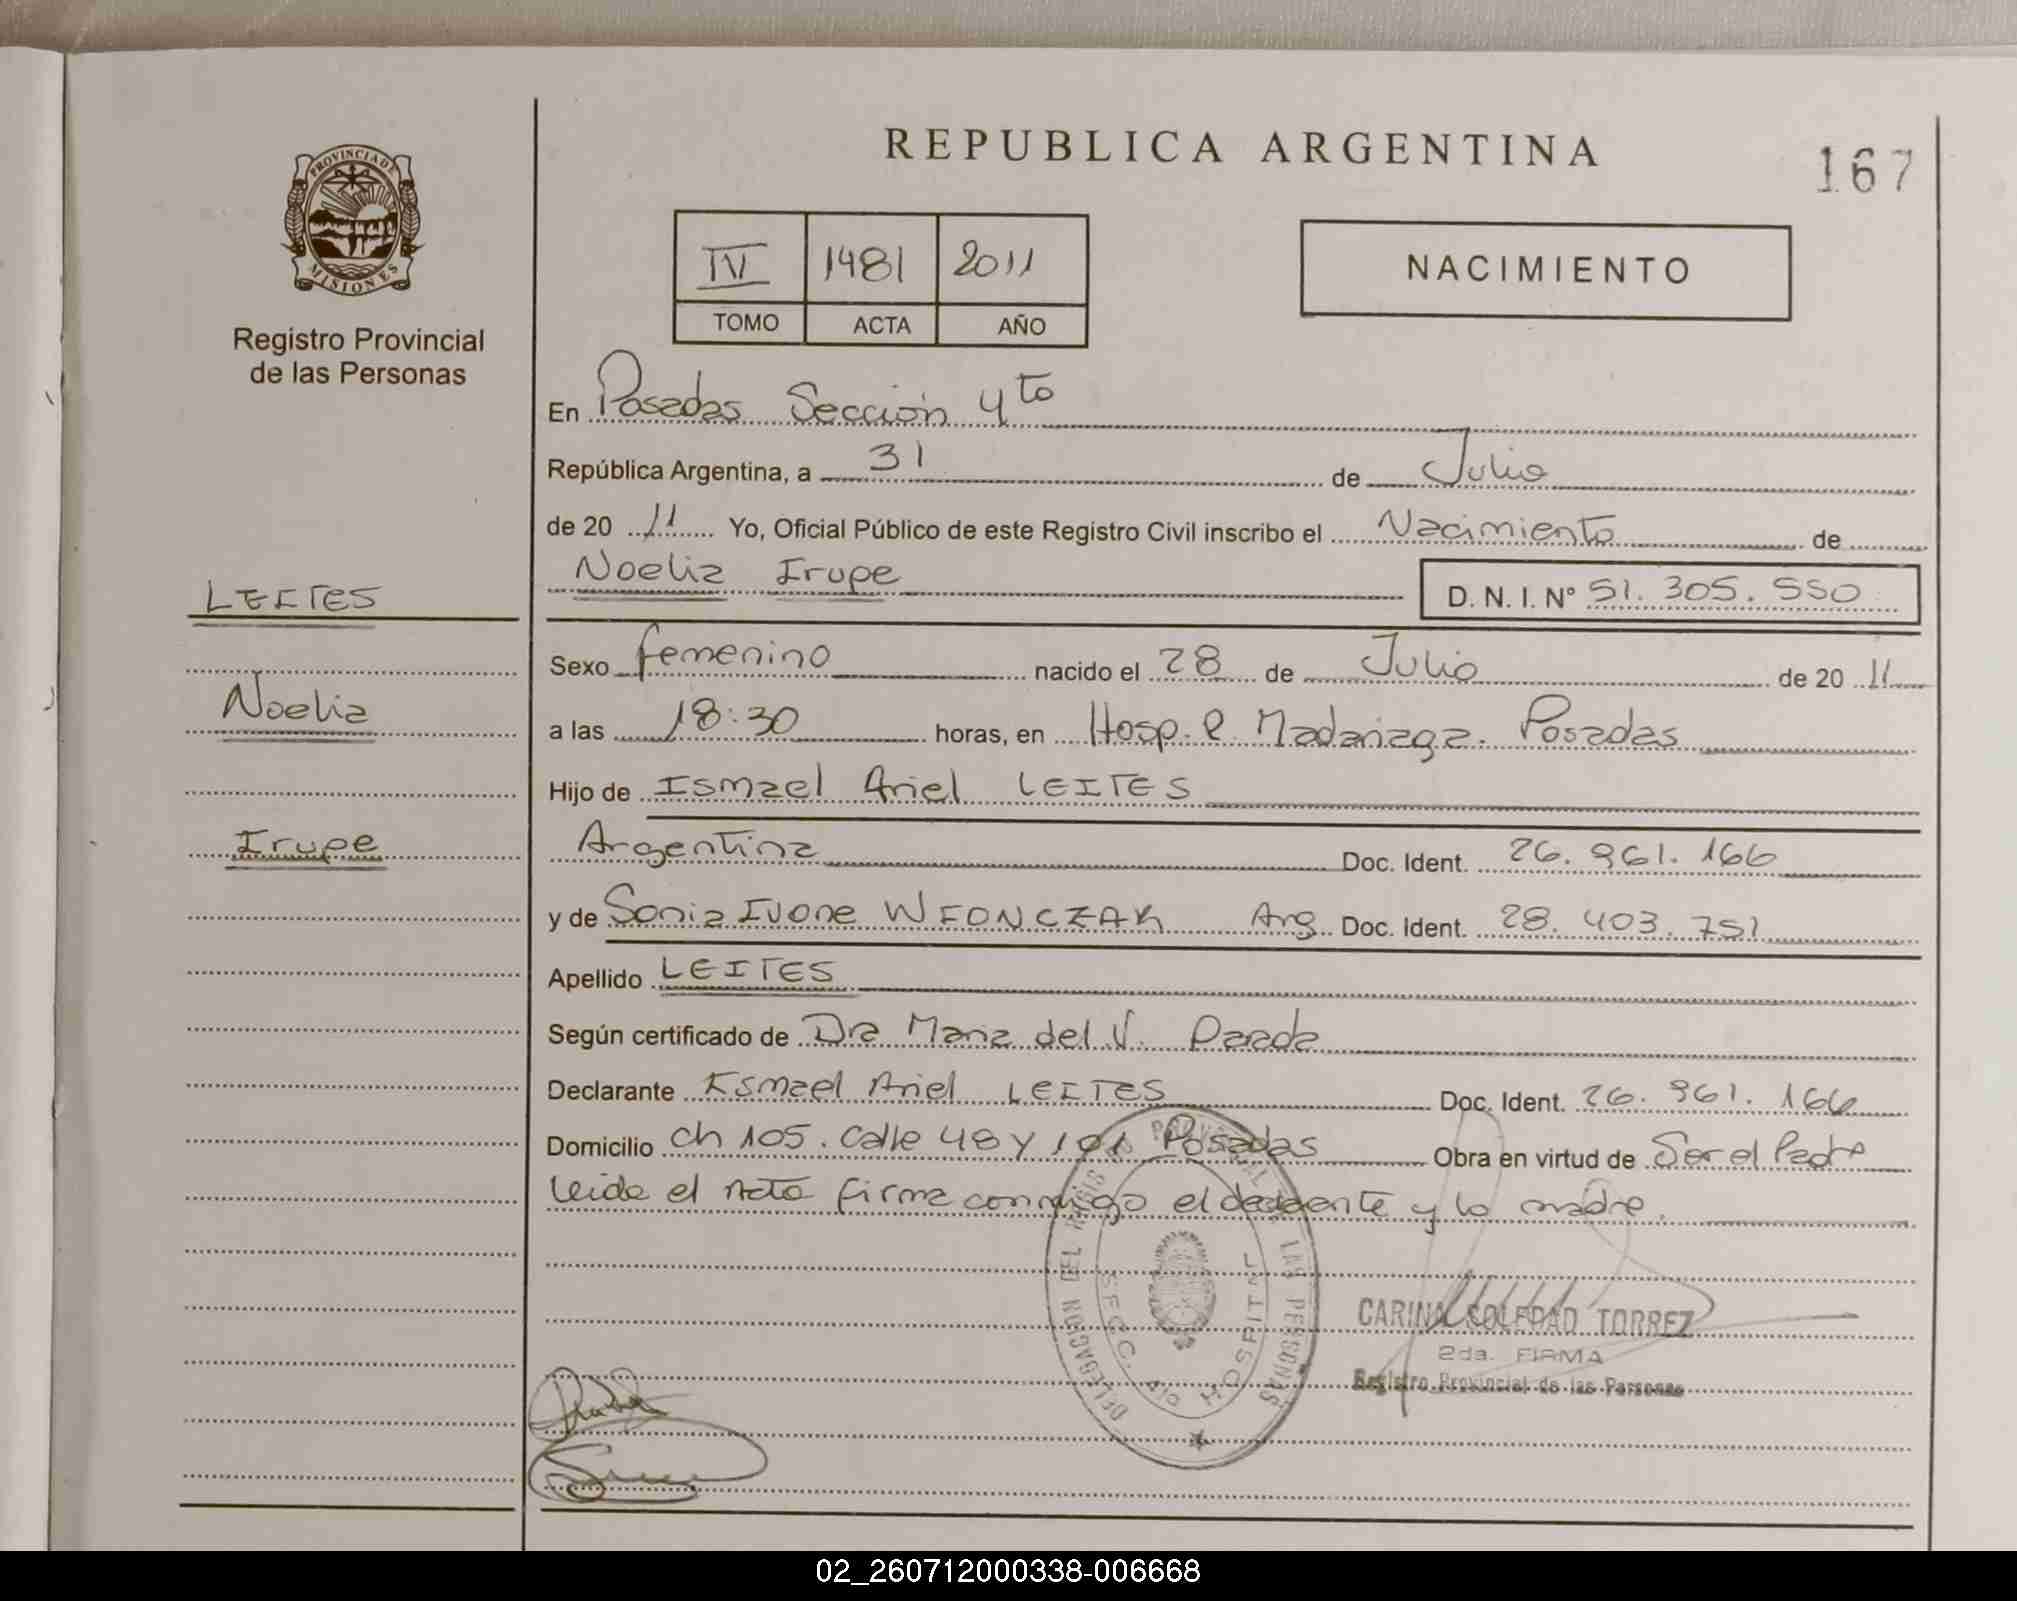 REPUBLICA ARGENTINA
167
PROVINCIA DE
MISIONES
Registro Provincial
de las Personas
IV 1481 2011
TOMO ACTA AÑO
NACIMIENTO
En Posadas Sección 4to
República Argentina, a 31 de Julio
de 20 11 Yo, Oficial Público de este Registro Civil inscribo el Nacimiento de
Noelia Irupe D. N. I. N° 51.305.550
LEITES
Noelia
Irupe
Sexo femenino nacido el 28 de Julio de 20 11
a las 18:30 horas, en Hosp. R. Madariaga. Posadas
Hijo de Ismael Ariel LEITES
Argentina Doc. Ident. 26.961.166
y de Sonia Ivone WIONCZAK Arg Doc. Ident. 28.403.751
Apellido LEITES
Según certificado de Dra Maria del V.
Declarante Ismael Ariel LEITES Doc. Ident. 26.961.166
Domicilio ch 105. Calle 48 y 101 Posadas Obra en virtud de Ser el Padre
leida el Acta firma conmigo el y la madre.
DELEGACION DEL REGIS PROVINCIAL DE LAS PERSONAS
SECC. 4º HOSPITAL
CARINA SOLEDAD TORREZ
2da. FIRMA
Registro Provincial de las Personas
02_260712000338-006668